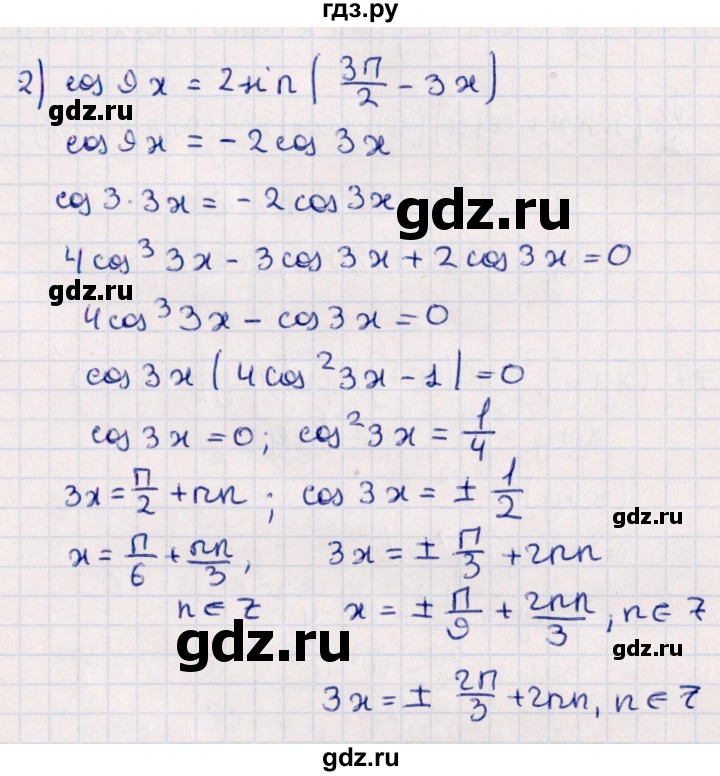 гдз.ру
2) cos 9x = 2 sin ( 3π/2 - 3x )
gdz.ru
cos 9x = - 2 cos 3x
cos 3·3x = - 2 cos 3x
gdz.ru
4 cos³ 3x - 3 cos 3x + 2 cos 3x = 0
gdz.ru
4 cos³ 3x - cos 3x = 0
cos 3x ( 4 cos² 3x - 1 ) = 0
cos 3x = 0; cos² 3x = 1/4
3x = π/2 + πn; cos 3x = ± 1/2
gdz.ru
x = π/6 + πn/3, 3x = ± π/3 + 2πn
n ∈ Z x = ± π/9 + 2πn/3, n ∈ Z
gdz.ru
gdz.ru
3x = ± 2π/3 + 2πn, n ∈ Z
gdz.ru